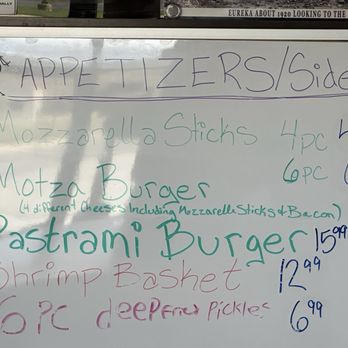 EUREKA ABOUT 1920 LOOKING TO THE
APPETIZERS/Side
Mozzarella Sticks 4pc
6pc
Motza Burger
(4 different cheeses Including Mozzarella Sticks & Bacon)
Pastrami Burger 15.99
Shrimp Basket 12.99
6 PC deep fried Pickles 6.99